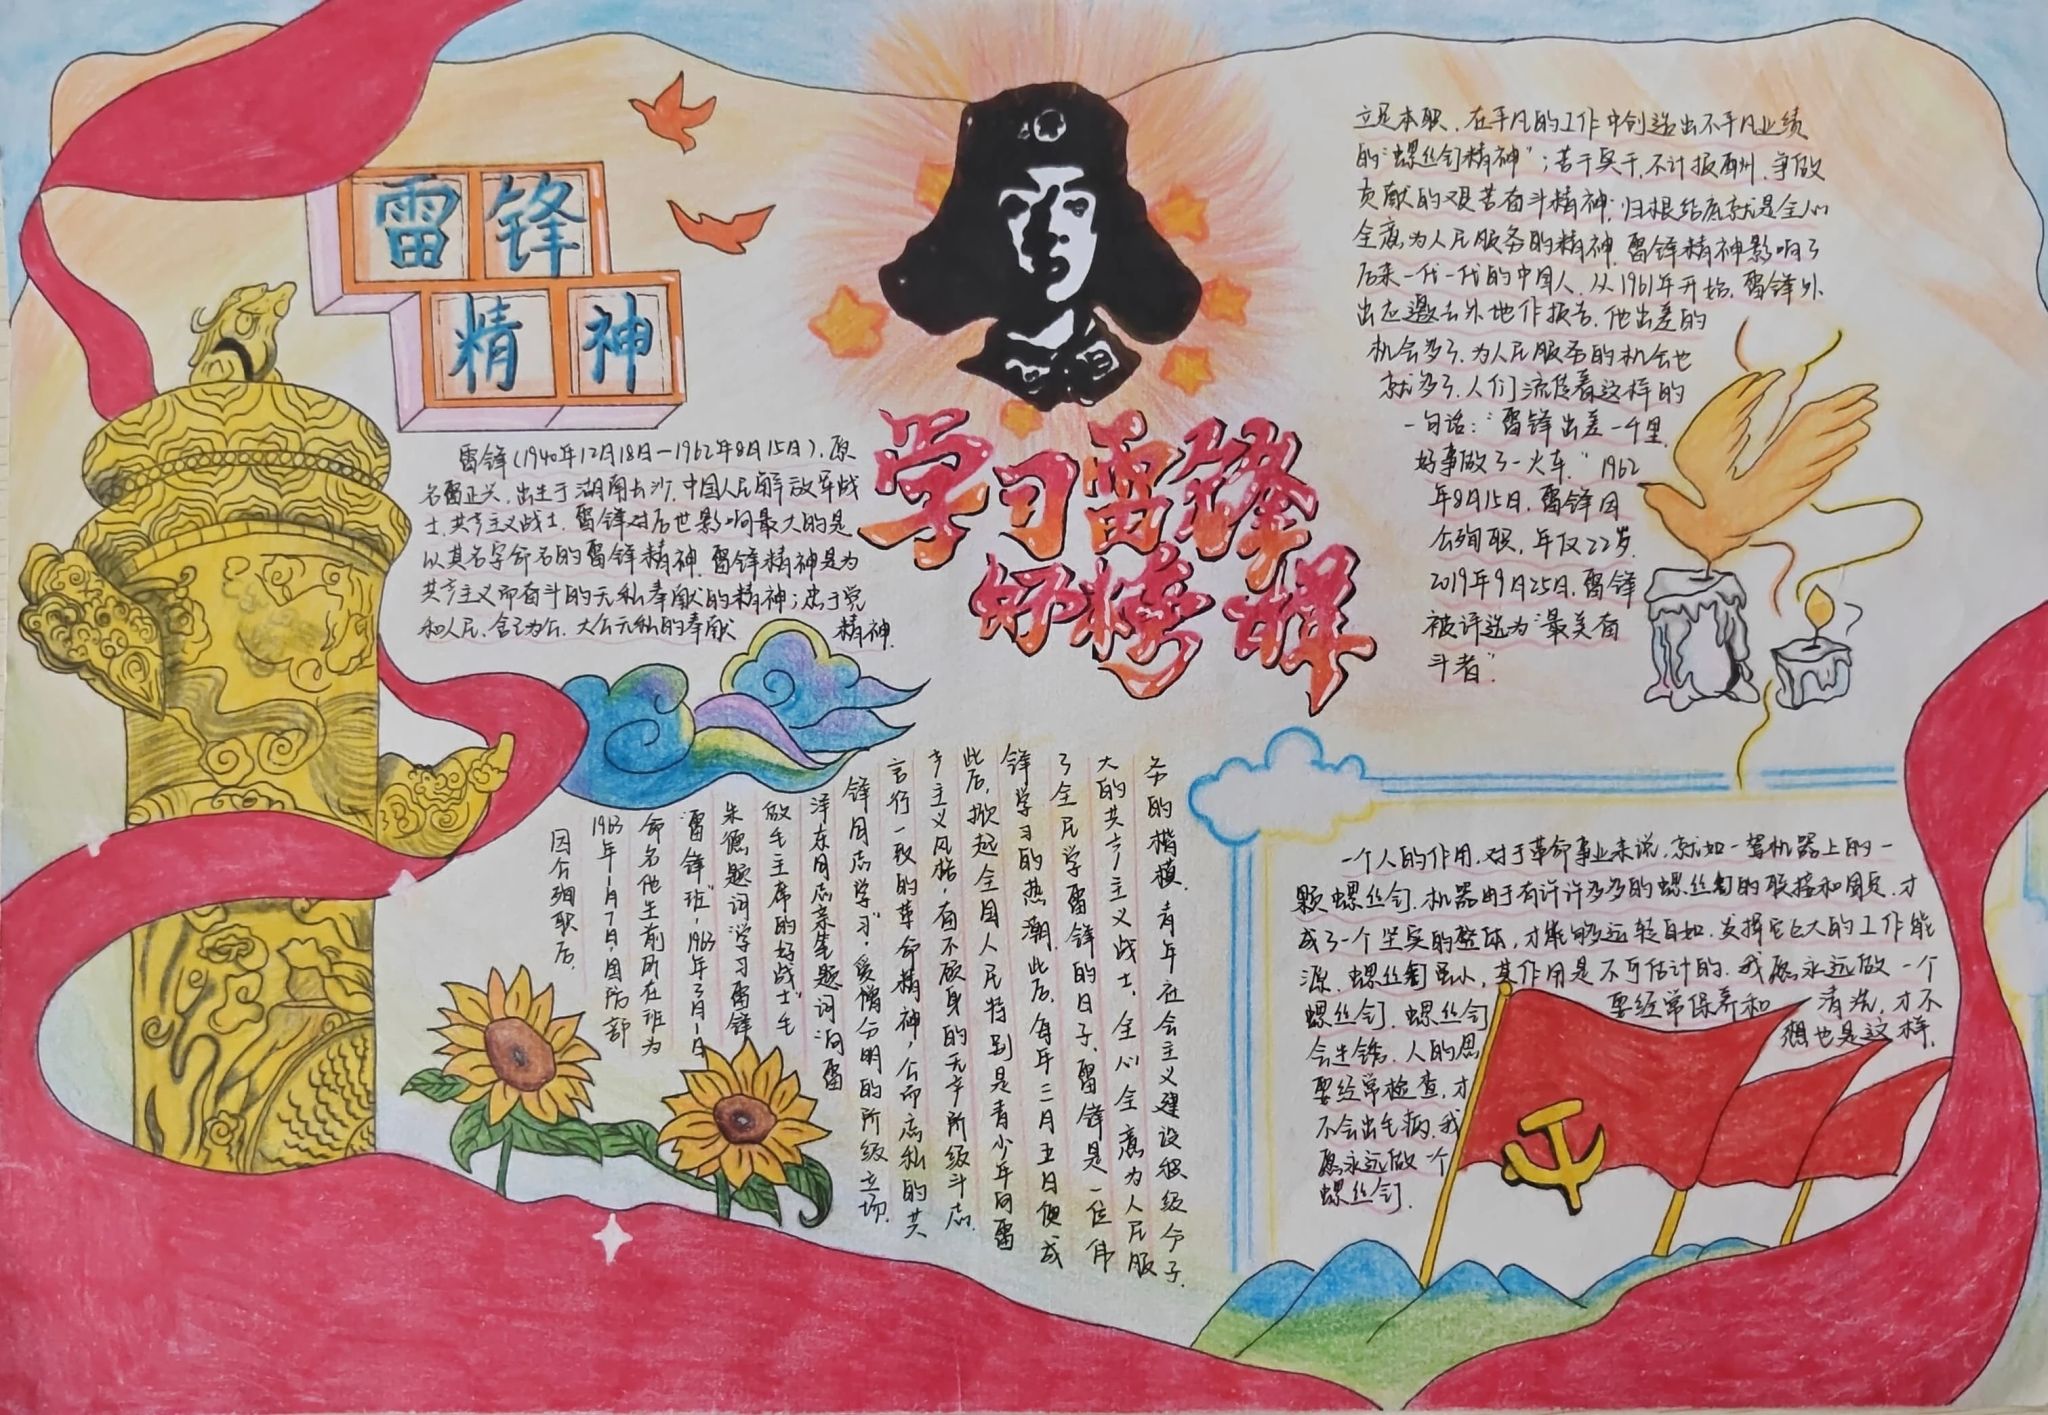 雷锋
精神
学习雷锋
好榜样
雷锋(1940年12月18日—1962年8月15日),原
名雷正兴,出生于湖南长沙,中国人民解放军战
士,共产主义战士,雷锋对后世影响最大的是
以其名字命名的雷锋精神,雷锋精神是为
共产主义而奋斗的无私奉献的精神;忠于党
和人民、舍己为公、大公无私的奉献 精神
立足本职、在平凡的工作中创造出不平凡业绩
的“螺丝钉精神”;苦干实干,不计报酬,争做
贡献的艰苦奋斗精神;归根结底就是全心
全意为人民服务的精神,雷锋精神影响了
后来一代一代的中国人,从1961年开始,雷锋外
出应邀去外地作报告,他出差的
机会多了,为人民服务的机会也
就多了,人们流传着这样的
一句话:“雷锋出差一千里,
好事做了一火车。”1962
年8月15日,雷锋因
公殉职,年仅22岁.
2019年9月25日,雷锋
被评选为“最美奋
斗者”.
因公殉职后,
1963年1月7日,国防部
命名他生前所在班为
“雷锋班”,1963年3月1日
朱德题词“学习雷锋
做毛主席的好战士”毛
泽东同志亲笔题词“向雷
锋同志学习”,爱憎分明的阶级立场,
言行一致的革命精神,公而忘私的共
产主义风格,奋不顾身的无产阶级斗志.
此后,掀起全国人民特别是青少年向雷
锋学习的热潮,此后,每年三月五日便成
了全民学雷锋的日子,雷锋是一位伟
大的共产主义战士,全心全意为人民服
务的楷模,青年社会主义建设积极分子.
一个人的作用,对于革命事业来说,就如一驾机器上的一
颗螺丝钉,机器由于有许许多多的螺丝钉的联接和固定,才
成了一个坚实的整体,才能够运转自如,发挥它巨大的工作能
源,螺丝钉虽小,其作用是不可估计的,我愿永远做一个
螺丝钉,螺丝钉 要经常保养和 清洗,才不
会生锈,人的思 想也是这样,
要经常检查,才
不会出毛病,我
愿永远做一个
螺丝钉.